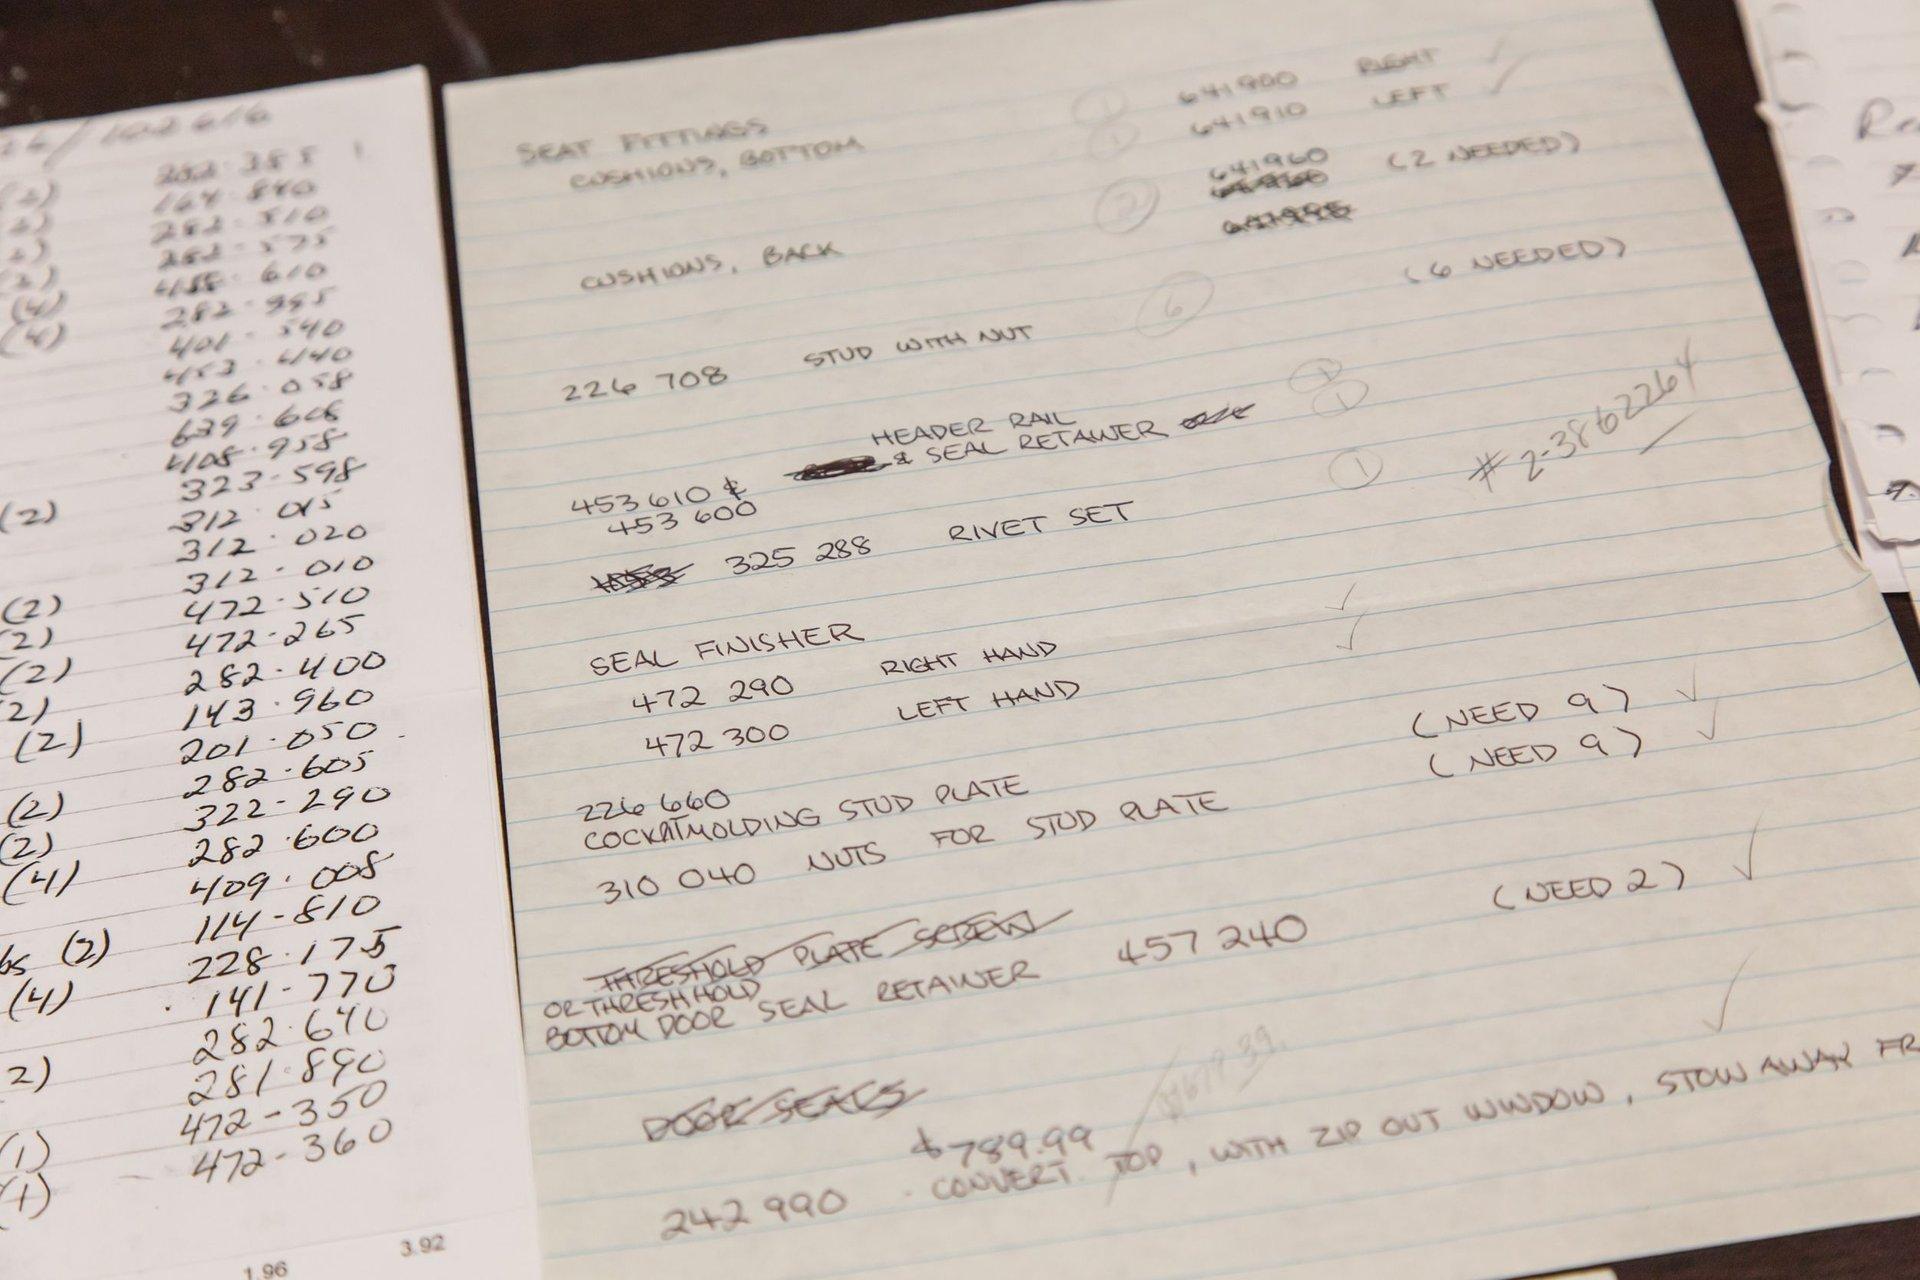 282-385
(2) 164-840
282-510
282-575
(2) 488-610
(4) 282-995
(4) 401-540
453-440
326-058
639-608
408-958
323-598
(2) 312-015
312-020
312-010
(2) 472-510
(2) 472-265
(2) 282-400
(2) 143-960
(2) 201-050
282-605
(2) 322-290
(2) 282-600
(4) 409-008
114-810
(2) 228-175
(4) 141-770
282-640
2) 281-890
472-350
(1) 472-360
(1)
1.96 3.92
SEAT FITTINGS
CUSHIONS, BOTTOM 1 641900 RIGHT ✓
1 641910 LEFT ✓
CUSHIONS, BACK 2 641960 (2 NEEDED)
226 708 STUD WITH NUT 6 (6 NEEDED)
453 610 & HEADER RAIL 1
453 600 & SEAL RETAINER 1
325 288 RIVET SET 1
# 2-3862264
SEAL FINISHER
472 290 RIGHT HAND ✓
472 300 LEFT HAND ✓
226 660
COCKPIT MOLDING STUD PLATE (NEED 9) ✓
310 040 NUTS FOR STUD PLATE (NEED 9) ✓
THRESHOLD PLATE SCREW
OR THRESHHOLD
BOTTOM DOOR SEAL RETAINER 457 240 (NEED 2) ✓
DOOR SEALS
$789.99
242 990 - CONVERT. TOP, WITH ZIP OUT WINDOW, STOW AWAY FR